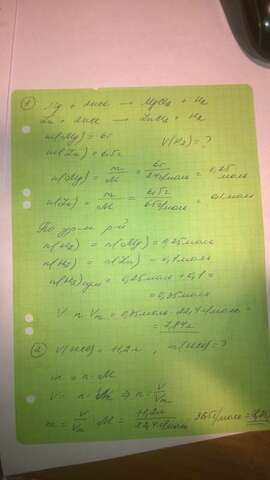 ① Mg + 2HCl → MgCl₂ + H₂
Zn + 2HCl → ZnCl₂ + H₂
m(Mg) = 6г
m(Zn) = 6,5г V(H₂) = ?
n(Mg) = m/M = 6г / 24г/моль = 0,25 моль
n(Zn) = m/M = 6,5г / 65г/моль = 0,1 моль
По ур-м р-й
n(H₂) = n(Mg) = 0,25 моль
n(H₂) = n(Zn) = 0,1 моль
n(H₂) = 0,25 моль + 0,1 =
= 0,35 моль
V = n·Vm = 0,35 моль · 22,4 г/моль =
= 7,84 л
② V(HCl) = 11,2л, m(HCl) = ?
m = n · M
V = n · Vm ⇒ n = V/Vm
m = V/Vm · M = 11,2л / 22,4 г/моль · 36,5г/моль =